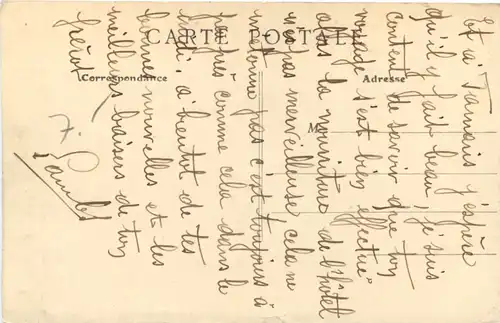 CARTE POSTALE
Correspondance
Adresse
M
Et à Tamaris j'espère
qu'il y fait beau, je suis
content de savoir que ton
voyage s'est bien effectué.
la nourriture de l'hôtel
pas merveilleuse cela ne
m'étonne pas c'est toujours à
près comme cela dans le
à bientôt de tes
bonnes nouvelles et les
meilleurs baisers de ton
frérot